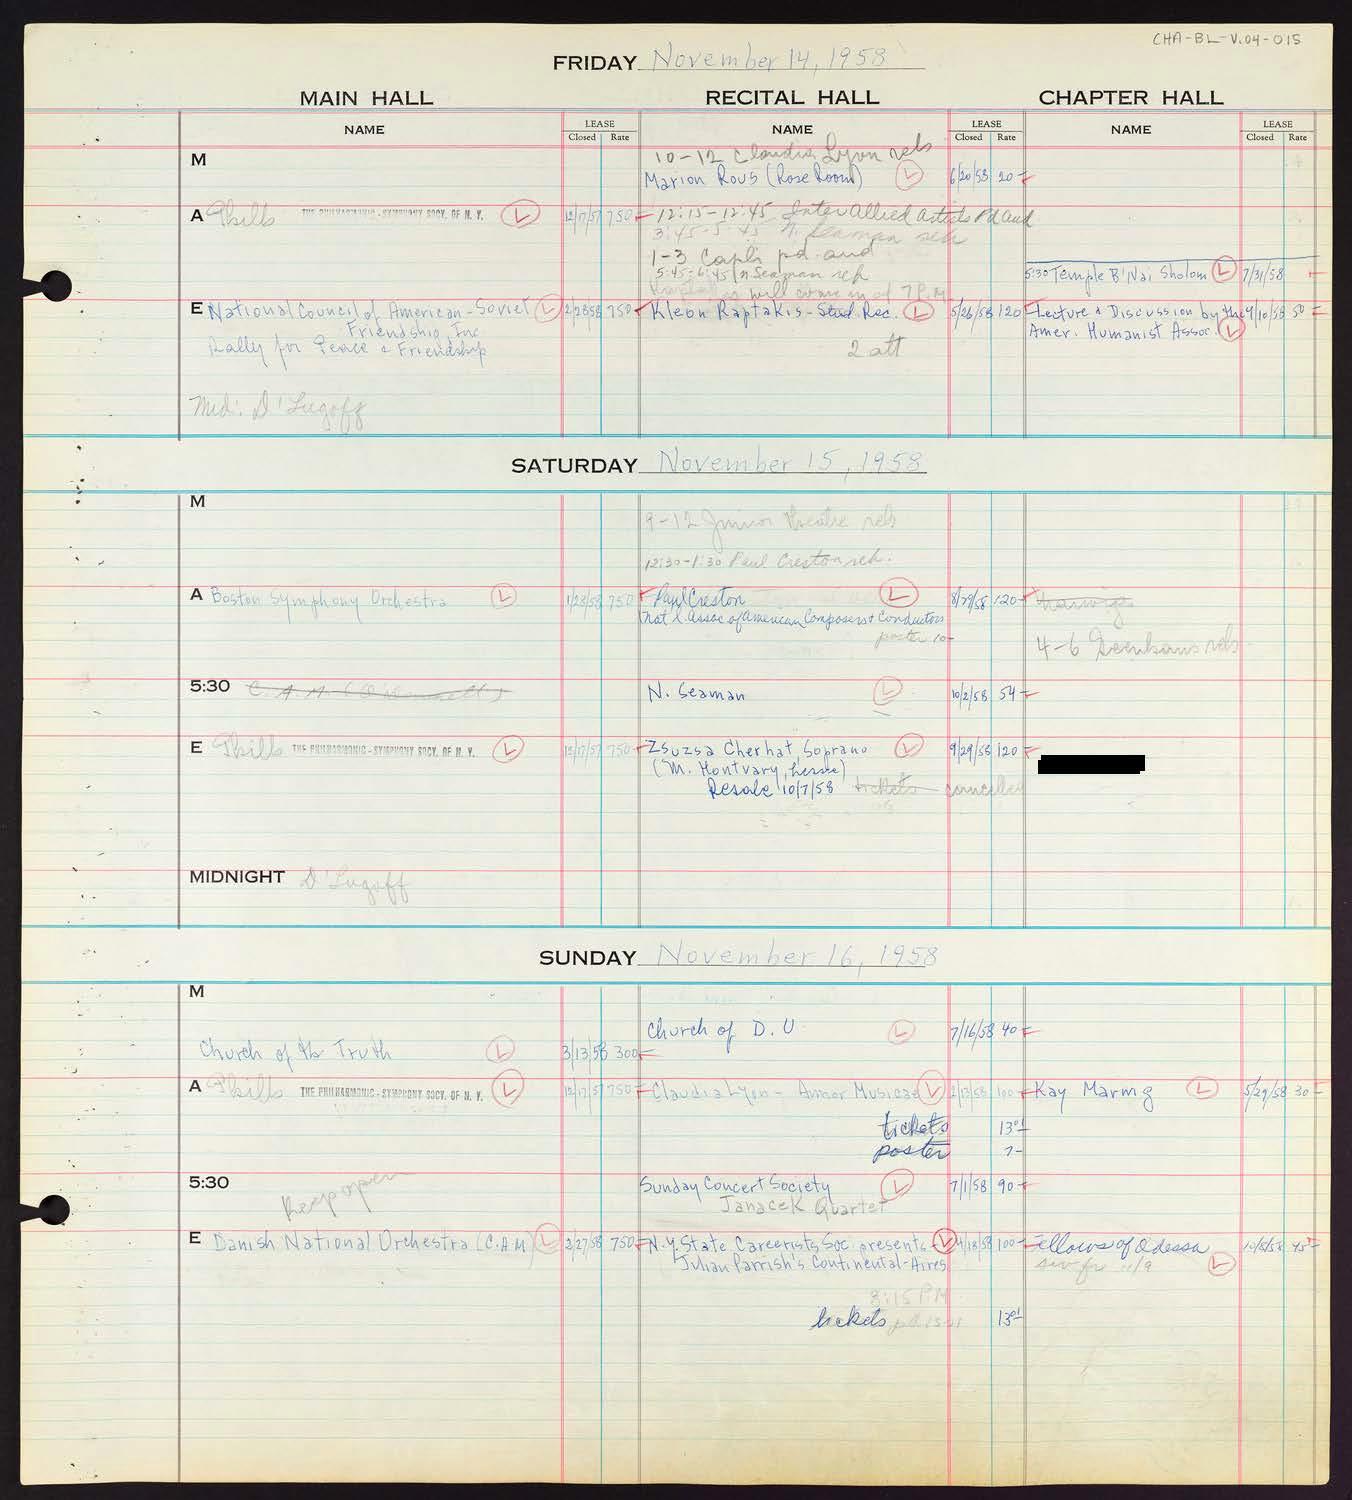 CHA-BL-V.04-015
FRIDAY November 14, 1958
MAIN HALL RECITAL HALL CHAPTER HALL
NAME LEASE Closed Rate NAME LEASE Closed Rate NAME LEASE Closed Rate
M
10-12 Claudia Lyon rels
Marion Rous (Rose Room) L 6/20/58 20-
A Philb THE PHILHARMONIC-SYMPHONY SOCY. OF N. Y. L 12/17/57 750-
12:15-12:45 Inter Allied Artists Pd aud
3:45-5:45 N. Seaman reh
1-3 Capli pd aud
5:45-6:45 N Seaman reh
will come in at 7 P.M.
5:30 Temple B'Nai Sholom L 7/31/58 -
E National Council of American-Soviet L 2/28/58 750-
Friendship, Inc.
Rally for Peace & Friendship
Kleon Raptakis - Stud. Rec. L 5/26/58 120
2 att
Lecture & Discussion by the 9/10/58 50-
Amer. Humanist Assoc. L
Mid: D'Lugoff
SATURDAY November 15, 1958
M
9-12 Junior Theatre rels
12:30-1:30 Paul Creston reh.
A Boston Symphony Orchestra L 1/28/58 750-
Paul Creston L 8/29/58 120-
Nat'l. Assoc of American Composers & Conductors
poster 10-
4-6 rels
5:30 C. A. M.
N. Seaman L 10/2/58 54-
E Philb THE PHILHARMONIC-SYMPHONY SOCY. OF N. Y. L 12/17/57 750-
Zsuzsa Cherhat, Soprano L 9/29/58 120-
(M. Hontvary, Lessee)
Resale 10/7/58 tickets cancelled
MIDNIGHT D'Lugoff
SUNDAY November 16, 1958
M
Church of D. U. L 7/16/58 40-
Church of the Truth L 3/13/58 300-
A Philb THE PHILHARMONIC-SYMPHONY SOCY. OF N. Y. L 12/17/57 750-
Claudia Lyon - Amor Musicae L 2/13/58 100-
Kay Marmg L 5/29/58 30-
tickets 13 01
poster 7-
5:30
Keep open
Sunday Concert Society L 7/1/58 90-
Janacek Quartet
E Danish National Orchestra (C.A.M) L 2/27/58 750-
N.Y. State Careerists Soc. presents L 4/18/58 100-
Julian Parrish's Continental-Aires
Fellows of Odessa 10/8/58 45-
11/9 L
8:15 P.M
tickets pd. 13.01 13 01